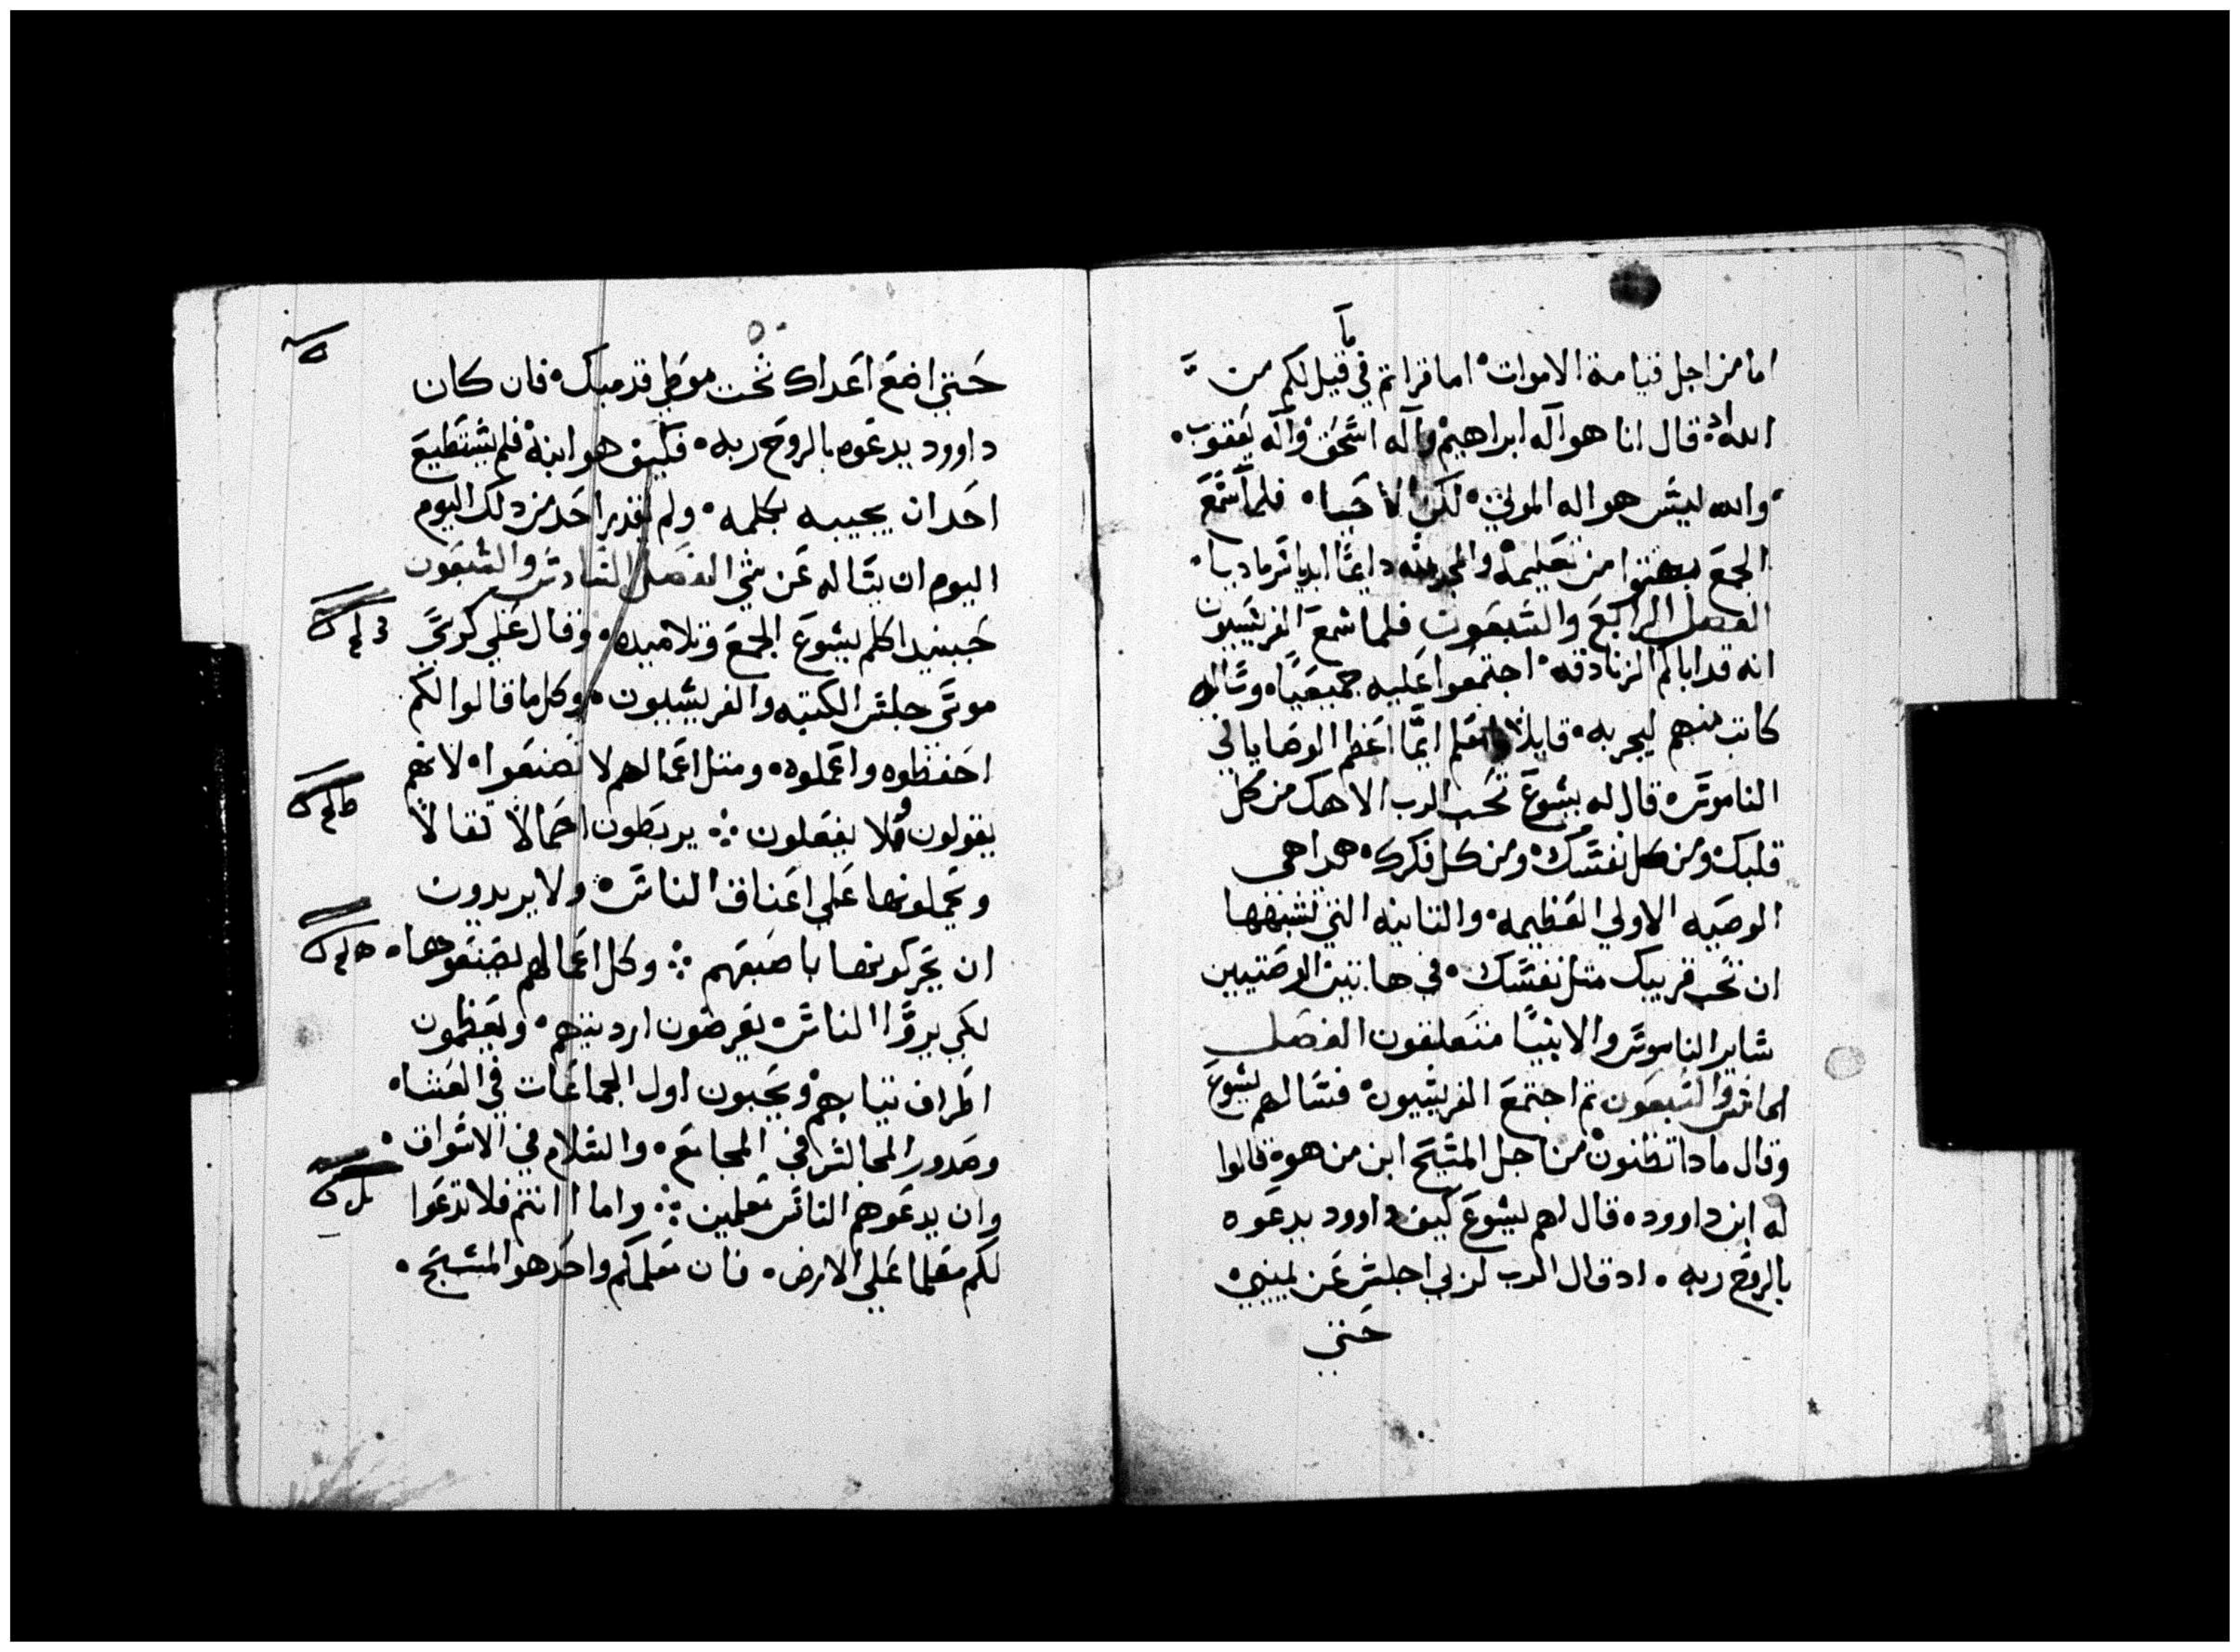 ما
اما من اجل قيامة الاموات اما قراتم في قيل لكم من
الله اذ قال انا هو اله ابراهيم واله اسحق واله يعقوب
والله ليس هو اله الموتي لكن الاحيا فلما سمع
الجمع بهتوا من تعليمه والمجد لله دايما ابديا سرمديا
الفصل الرابع والسبعون فلما سمع الفريسيون
انه قد ابكم الزنادقه اجتمعوا عليه جميعيا وساله
كاتب منهم ليجربه قايلا يامعلم ايما اعظم الوصايا في
الناموس قال له يسوع تحب الرب الاهك من كل
قلبك ومن كل نفسك ومن كل فكرك هدا هي
الوصيه الاولي العظيمه والتانيه التي تشبهها
ان تحب قريبك متل نفسك في هاتين الوصتيين
ساير الناموس والانبيا متعلقون الفصل
الخامس والسبعون تم اجتمع الفريسيون فسالهم يسوع
وقال مادا تظنون من اجل المسيح ابن من هو قالوا
له ابن داوود قال لهم يسوع كيف داوود يدعوه
بالروح ربه اد قال الرب لربي اجلس عن يميني
حتي
حتي اضع اعداك تحت موطي قدميك فان كان
داوود يدعوه بالروح ربه فكيف هو ابنه فلم يستطيع
احد ان يجيبه بكلمه ولم يقدر احد من دلك اليوم
اليوم ان يساله عن شي الفصل السادس والسبعون
حينيد اكلم يسوع الجمع وتلاميده وقال علي كرسي
موسي جلس الكتبه والفريسيون وكل ما قالوا لكم
احفظوه واعملوه ومتل اعمالهم لا تصنعوا لانهم
يقولون ولا يفعلون يربطون احمالا تقالا
ويحملونها علي اعناق الناس ولا يريدون
ان يحركونها باصبعهم وكل اعمالهم يصنعوها
لكي يروا الناس يعرضون ارديتهم ويعظمون
اطراف تيابهم ويحبون اول الجماعات في العشا
وصدور المجالس في المجامع والسلام في الاسواق
وان يدعوهم الناس معلمين واما انتم فلا تدعوا
لكم معلما علي الارض فان معلمكم واحد هو المسيح